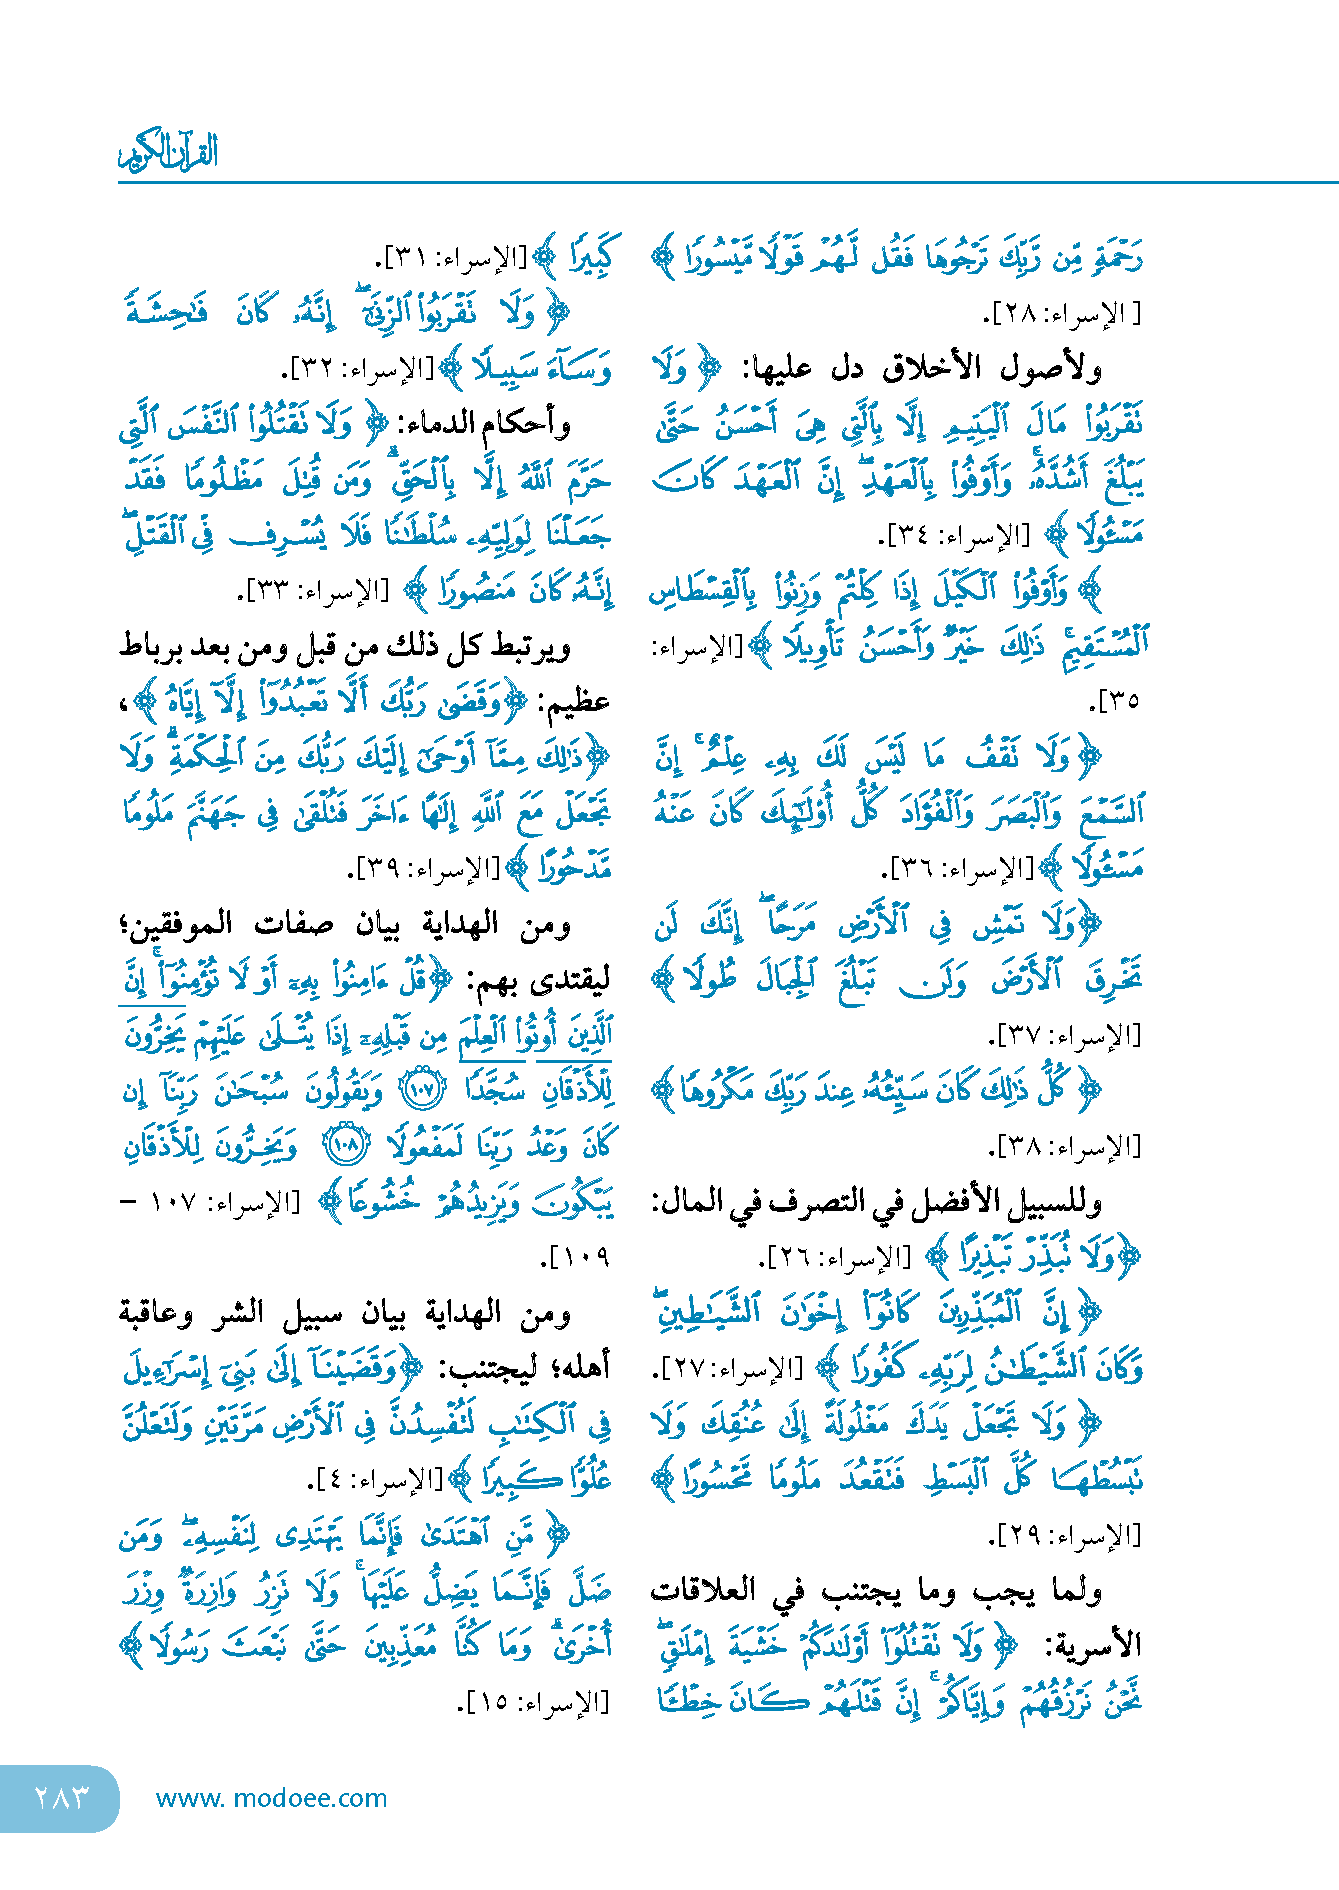 القرآن الكريم
رَحْمَةٍ مِّن رَّبِّكَ تَرْجُوهَا فَقُل لَّهُمْ قَوْلًا مَّيْسُورًا ﴾
[ الإسراء: ٢٨].
ولأصول الأخلاق دل عليها: ﴿ وَلَا
نَقْرَبُوا۟ مَالَ ٱلْيَتِيمِ إِلَّا بِٱلَّتِى هِىَ أَحْسَنُ حَتَّىٰ
يَبْلُغَ أَشُدَّهُۥ ۚ وَأَوْفُوا۟ بِٱلْعَهْدِ ۖ إِنَّ ٱلْعَهْدَ كَانَ
مَسْـُٔولًا ﴾ [الإسراء: ٣٤].
﴿ وَأَوْفُوا۟ ٱلْكَيْلَ إِذَا كِلْتُمْ وَزِنُوا۟ بِٱلْقِسْطَاسِ
ٱلْمُسْتَقِيمِ ۚ ذَٰلِكَ خَيْرٌ وَأَحْسَنُ تَأْوِيلًا ﴾ [الإسراء:
٣٥].
﴿ وَلَا نَقْفُ مَا لَيْسَ لَكَ بِهِۦ عِلْمٌ ۚ إِنَّ
ٱلسَّمْعَ وَٱلْبَصَرَ وَٱلْفُؤَادَ كُلُّ أُو۟لَٰٓئِكَ كَانَ عَنْهُ
مَسْـُٔولًا ﴾ [الإسراء: ٣٦].
﴿وَلَا تَمْشِ فِى ٱلْأَرْضِ مَرَحًا ۖ إِنَّكَ لَن
تَخْرِقَ ٱلْأَرْضَ وَلَن تَبْلُغَ ٱلْجِبَالَ طُولًا ﴾
[الإسراء: ٣٧].
﴿ كُلُّ ذَٰلِكَ كَانَ سَيِّئُهُۥ عِندَ رَبِّكَ مَكْرُوهًا ﴾
[الإسراء: ٣٨].
وللسبيل الأفضل في التصرف في المال:
﴿وَلَا نُبَذِّرْ تَبْذِيرًا ﴾ [الإسراء: ٢٦].
﴿ إِنَّ ٱلْمُبَذِّرِينَ كَانُوٓا۟ إِخْوَٰنَ ٱلشَّيَٰطِينِ ۖ
وَكَانَ ٱلشَّيْطَٰنُ لِرَبِّهِۦ كَفُورًا ﴾ [الإسراء:٢٧].
﴿ وَلَا تَجْعَلْ يَدَكَ مَغْلُولَةً إِلَىٰ عُنُقِكَ وَلَا
نَبْسُطْهَا كُلَّ ٱلْبَسْطِ فَنَقْعُدَ مَلُومًا مَّحْسُورًا ﴾
[الإسراء: ٢٩].
ولما يجب وما يجتنب في العلاقات
الأسرية: ﴿ وَلَا نَقْتُلُوٓا۟ أَوْلَٰدَكُمْ خَشْيَةَ إِمْلَٰقٍ ۖ
نَّحْنُ نَرْزُقُهُمْ وَإِيَّاكُمْ ۚ إِنَّ قَتْلَهُمْ كَانَ خِطْـًٔا
كَبِيرًا ﴾ [الإسراء: ٣١].
﴿ وَلَا نَقْرَبُوا۟ ٱلزِّنَىٰٓ ۖ إِنَّهُۥ كَانَ فَٰحِشَةً
وَسَآءَ سَبِيلًا ﴾ [الإسراء: ٣٢].
وأحكام الدماء: ﴿ وَلَا نَقْتُلُوا۟ ٱلنَّفْسَ ٱلَّتِى
حَرَّمَ ٱللَّهُ إِلَّا بِٱلْحَقِّ ۗ وَمَن قُتِلَ مَظْلُومًا فَقَدْ
جَعَلْنَا لِوَلِيِّهِۦ سُلْطَٰنًا فَلَا يُسْرِف فِّى ٱلْقَتْلِ ۖ
إِنَّهُۥ كَانَ مَنصُورًا ﴾ [الإسراء: ٣٣].
ويرتبط كل ذلك من قبل ومن بعد برباط
عظيم: ﴿وَقَضَىٰ رَبُّكَ أَلَّا تَعْبُدُوٓا۟ إِلَّآ إِيَّاهُ ﴾،
﴿ذَٰلِكَ مِمَّآ أَوْحَىٰٓ إِلَيْكَ رَبُّكَ مِنَ ٱلْحِكْمَةِ ۗ وَلَا
تَجْعَلْ مَعَ ٱللَّهِ إِلَٰهًا ءَاخَرَ فَتُلْقَىٰ فِى جَهَنَّمَ مَلُومًا
مَّدْحُورًا ﴾ [الإسراء: ٣٩].
ومن الهداية بيان صفات الموفقين؛
ليقتدى بهم: ﴿قُلْ ءَامِنُوا۟ بِهِۦٓ أَوْ لَا تُؤْمِنُوٓا۟ ۚ إِنَّ
ٱلَّذِينَ أُوتُوا۟ ٱلْعِلْمَ مِن قَبْلِهِۦٓ إِذَا يُتْلَىٰ عَلَيْهِمْ يَخِرُّونَ
لِلْأَذْقَانِ سُجَّدًا ١٠٧ وَيَقُولُونَ سُبْحَٰنَ رَبِّنَآ إِن
كَانَ وَعْدُ رَبِّنَا لَمَفْعُولًا ١٠٨ وَيَخِرُّونَ لِلْأَذْقَانِ
يَبْكُونَ وَيَزِيدُهُمْ خُشُوعًا﴾ [الإسراء: ١٠٧ –
١٠٩].
ومن الهداية بيان سبيل الشر وعاقبة
أهله؛ ليجتنب: ﴿وَقَضَيْنَآ إِلَىٰ بَنِىٓ إِسْرَٰٓءِيلَ
فِى ٱلْكِتَٰبِ لَتُفْسِدُنَّ فِى ٱلْأَرْضِ مَرَّتَيْنِ وَلَتَعْلُنَّ
عُلُوًّا كَبِيرًا ﴾ [الإسراء: ٤].
﴿ مَّنِ ٱهْتَدَىٰ فَإِنَّمَا يَهْتَدِى لِنَفْسِهِۦ ۖ وَمَن
ضَلَّ فَإِنَّمَا يَضِلُّ عَلَيْهَا ۚ وَلَا نَزِرُ وَازِرَةٌ وِزْرَ
أُخْرَىٰ ۗ وَمَا كُنَّا مُعَذِّبِينَ حَتَّىٰ نَبْعَثَ رَسُولًا ﴾
[الإسراء: ١٥].
www. modoee.com
٢٨٣